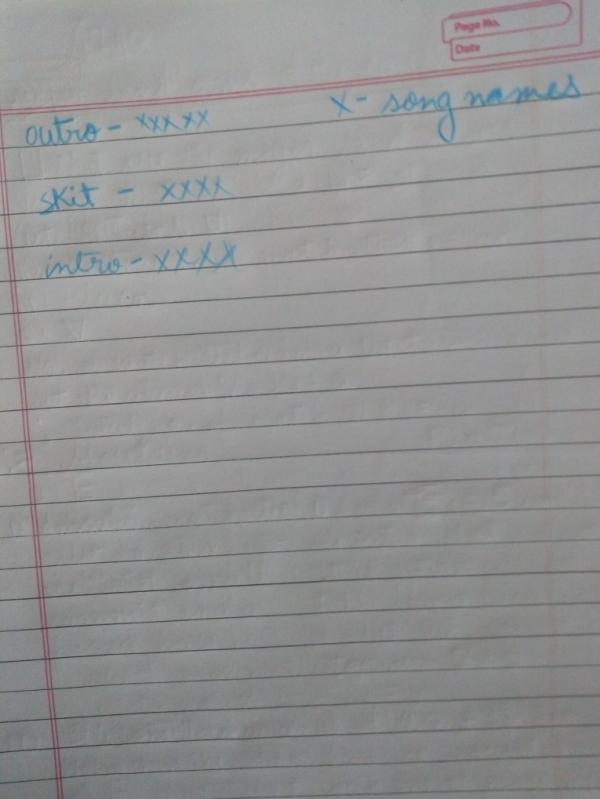 Page No.
Date
outro - xxxxx x - song names
skit - xxxx
intro - xxxx